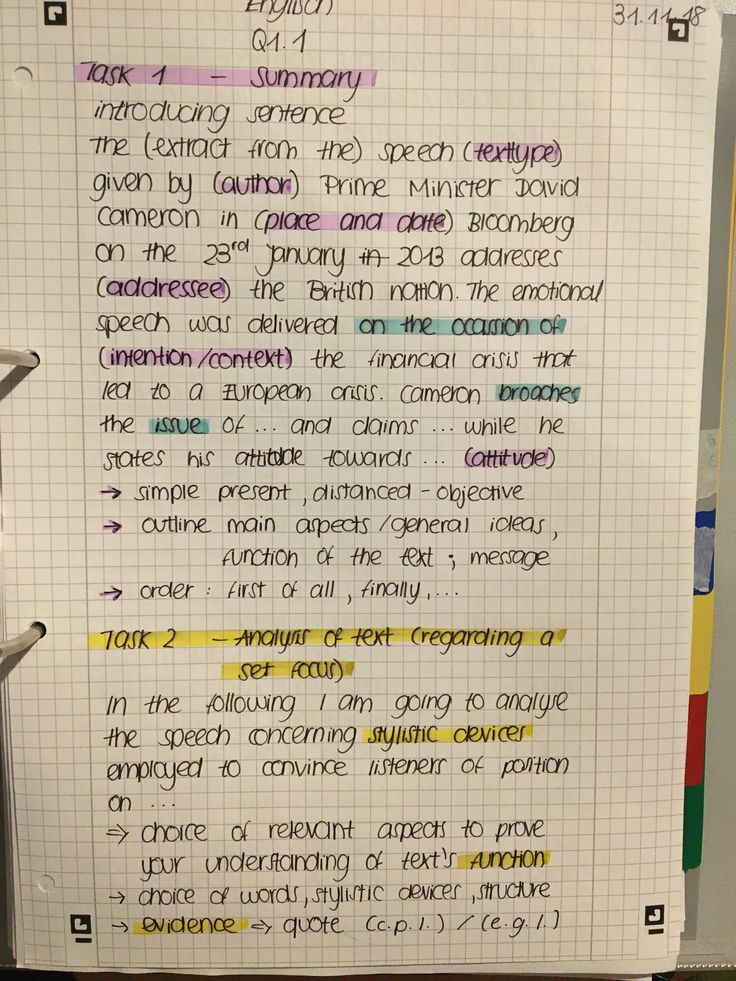 Englisch 31.11.18
Q1.1
Task 1 - Summary
introducing sentence
The (extract from the) speech (texttype)
given by (author) Prime Minister David
Cameron in (place and date) Bloomberg
on the 23rd january in 2013 addresses
(addressee) the British nation. The emotional
speech was delivered on the occasion of
(intention/context) the financial crisis that
led to a European crisis. Cameron broaches
the issue of ... and claims ... while he
states his attitude towards ... (attitude)
→ simple present, distanced - objective
→ outline main aspects/general ideas,
function of the text; message
→ order: first of all, finally, ...
Task 2 - Analysis of text (regarding a
set focus)
In the following I am going to analyse
the speech concerning stylistic devices
employed to convince listeners of position
on ...
⇒ choice of relevant aspects to prove
your understanding of text's function
→ choice of words, stylistic devices, structure
→ evidence ⇒ quote (c.p.l.) / (e.g.l.)